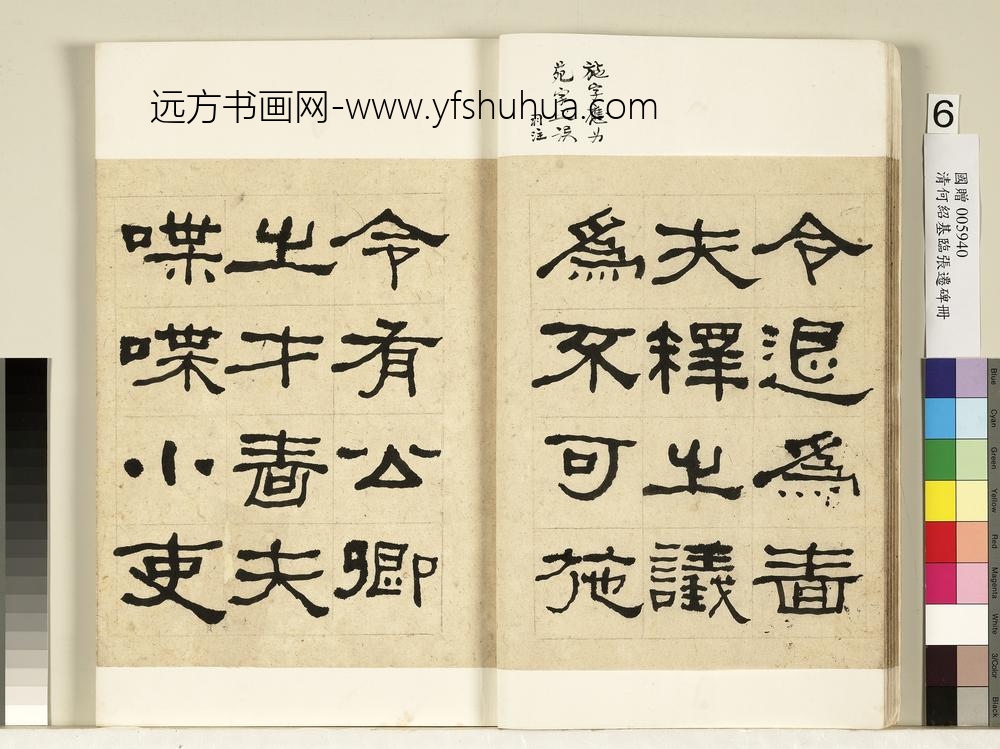 远方书画网-www.yfshuhua.com
施字應为
苑字之误
注
令退爲嗇
夫釋之議
爲不可施
令有公卿
之才嗇夫
喋喋小吏
6
國贈 005940
清何紹基臨張遷碑冊
Blue
Cyan
Green
Yellow
Red
Magenta
White
3/Color
Black